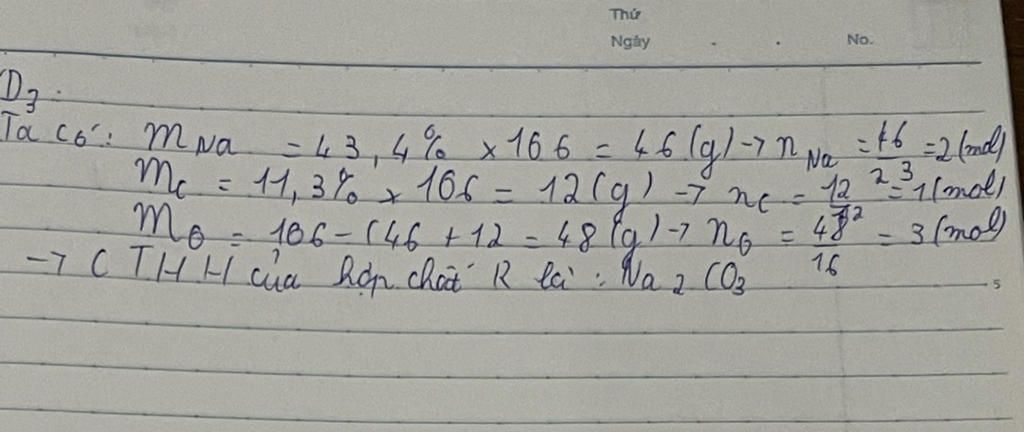 Thứ
Ngày . . No.
D3.
Ta có: mNa = 43,4% × 106 = 46(g) → nNa = 46/23 = 2(mol)
mC = 11,3% × 106 = 12(g) → nC = 12/12 = 1(mol)
mO = 106 - (46 + 12 = 48(g) → nO = 48/16 = 3(mol)
→ CTHH của hợp chất R là: Na2CO3
5